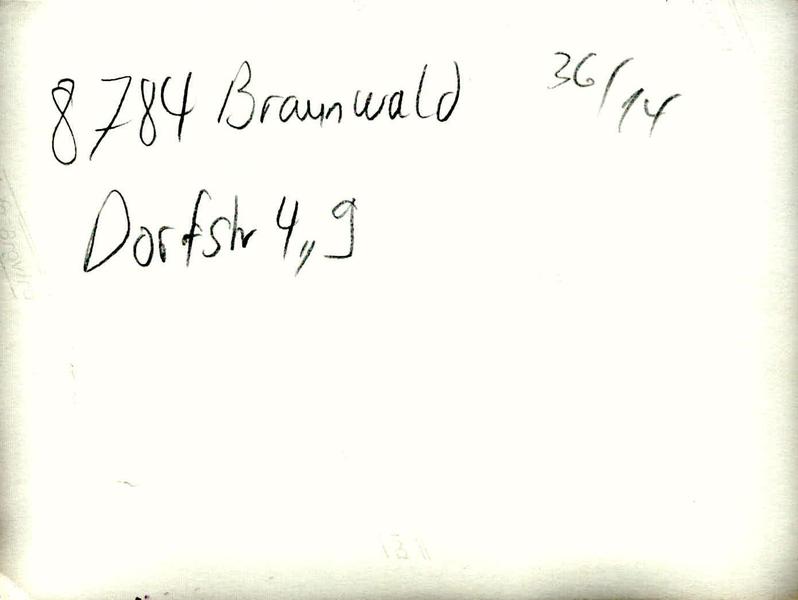 8784 Braunwald 36/14
Dorfstr 4, 9